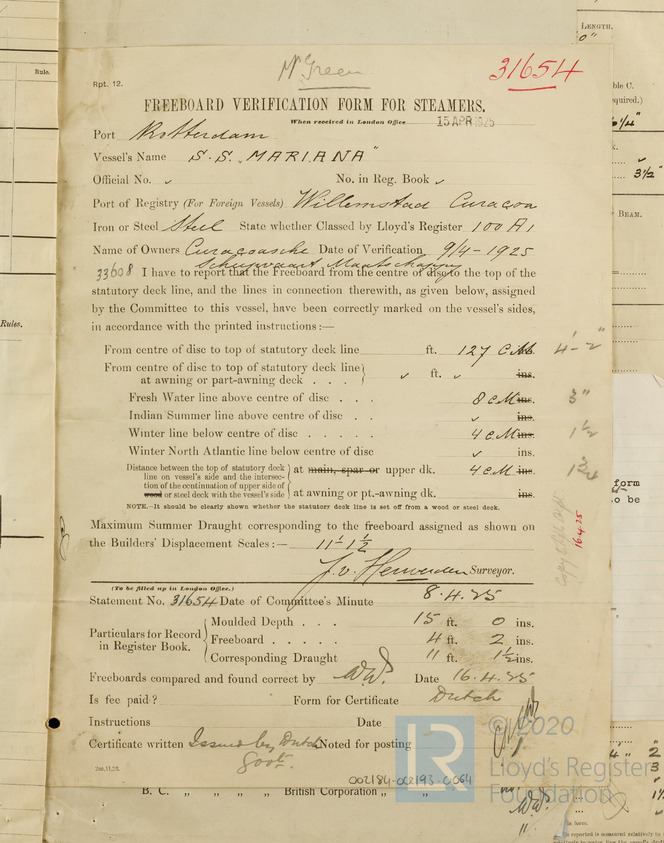 LENGTH.
0"
Mr Green
31654
Rpt. 12.
Rule.
FREEBOARD VERIFICATION FORM FOR STEAMERS.
When received in London Office 15 APR 1925
Port Rotterdam
Vessel's Name S.S. "MARIANA"
Official No. No. in Reg. Book
Port of Registry (For Foreign Vessels) Willemstad Curaçoa
Iron or Steel Steel State whether Classed by Lloyd's Register 100 A1
Name of Owners Curaçaosche Date of Verification 9/4-1925
Scheepvaart Maatschappij
33608 I have to report that the Freeboard from the centre of disc to the top of the
statutory deck line, and the lines in connection therewith, as given below, assigned
by the Committee to this vessel, have been correctly marked on the vessel's sides,
in accordance with the printed instructions:—
From centre of disc to top of statutory deck line ft. 127 c.M. ins. 4'-2"
From centre of disc to top of statutory deck line
at awning or part-awning deck . . . ft. ins.
Fresh Water line above centre of disc . . . 8 c.M. ins. 3"
Indian Summer line above centre of disc . . ins.
Winter line below centre of disc . . . . . 4 c.M. ins. 1½
Winter North Atlantic line below centre of disc ins.
Distance between the top of statutory deck
line on vessel's side and the intersec-
tion of the continuation of upper side of
wood or steel deck with the vessel's side
at main, spar or upper dk. 4 c.M. ins. 1¾
at awning or pt.-awning dk. ins.
NOTE.—It should be clearly shown whether the statutory deck line is set off from a wood or steel deck.
Maximum Summer Draught corresponding to the freeboard assigned as shown on
the Builders' Displacement Scales:— 11'-1½
J. v. Herwerden Surveyor.
16.4.25
(To be filled up in London Office.)
Statement No. 31654 Date of Committee's Minute 8.4.25
Particulars for Record
in Register Book.
Moulded Depth . . . 15 ft. 0 ins.
Freeboard . . . . . 4 ft. 2 ins.
Corresponding Draught 11 ft. 1½ ins.
Freeboards compared and found correct by WW. Date 16.4.25
Is fee paid? Form for Certificate Dutch
Instructions Date
Certificate written Issued by Dutch Noted for posting
Govt.
2m,11,23.
002184-002193-0064
B. C. „ „ „ „ British Corporation „ „
Rules.
ble C.
equired.)
6¼"
3½"
BEAM.
form
o be
LR
© 2020
Lloyd's Register
Foundation